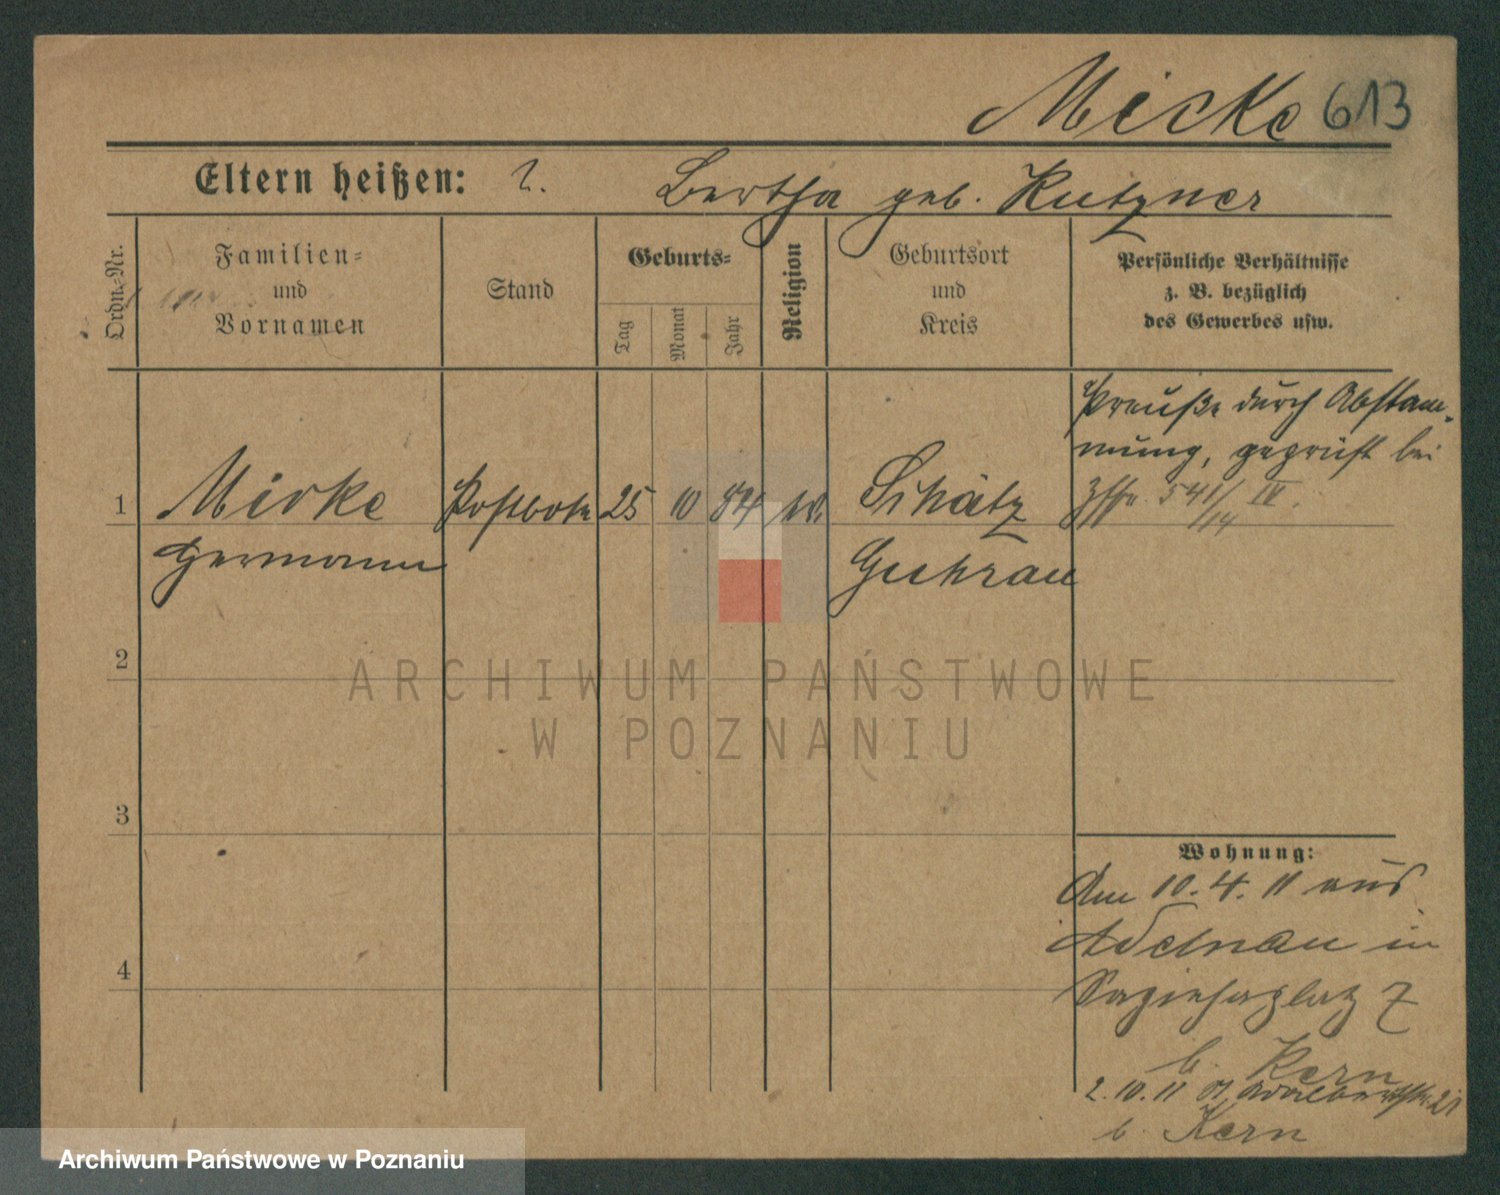 Micke 613
Eltern heißen: ?. Bertha geb. Kutzner
Ordn.-Nr.
Familien-
und
Vornamen
Stand
Geburts-
Tag
Monat
Jahr
Religion
Geburtsort
und
Kreis
Persönliche Verhältnisse
z. B. bezüglich
des Gewerbes usw.
Preuße durch Abstam-
mung, geprüft bei
541/14 IV.
1 Mirke Postbote 25 10 84 Schätz
Hermann Guhrau
2
3
4
Wohnung:
Am 10.4.11 aus
Adelnau in
Sapiehaplatz 7
b. Kern
2.10.11 St. Adalbertstr. 21
b. Kern
ARCHIWUM PAŃSTWOWE
W POZNANIU
Archiwum Państwowe w Poznaniu